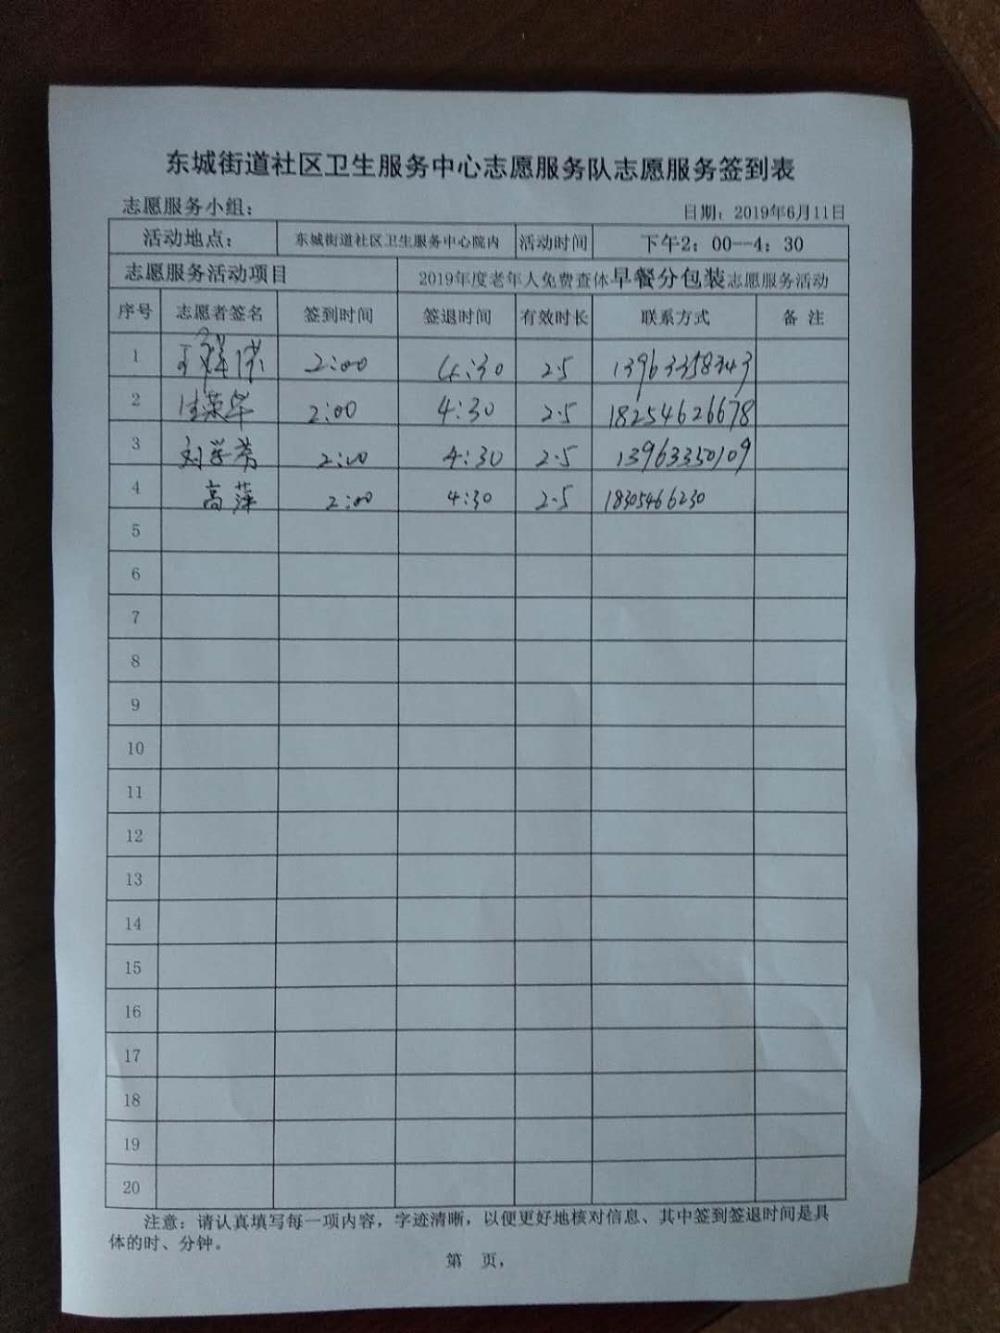 东城街道社区卫生服务中心志愿服务队志愿服务签到表
志愿服务小组： 日期：2019年6月11日
活动地点： 东城街道社区卫生服务中心院内 活动时间 下午2：00--4：30
志愿服务活动项目 2019年度老年人免费查体早餐分包装志愿服务活动
序号 志愿者签名 签到时间 签退时间 有效时长 联系方式 备 注
1 2:00 4:30 2.5 13963358343
2 荣华 2:00 4:30 2.5 18254626678
3 刘学芳 2:00 4:30 2.5 13963350109
4 高萍 2:00 4:30 2.5 18305466230
5
6
7
8
9
10
11
12
13
14
15
16
17
18
19
20
注意：请认真填写每一项内容，字迹清晰，以便更好地核对信息、其中签到签退时间是具
体的时、分钟。
第 页，